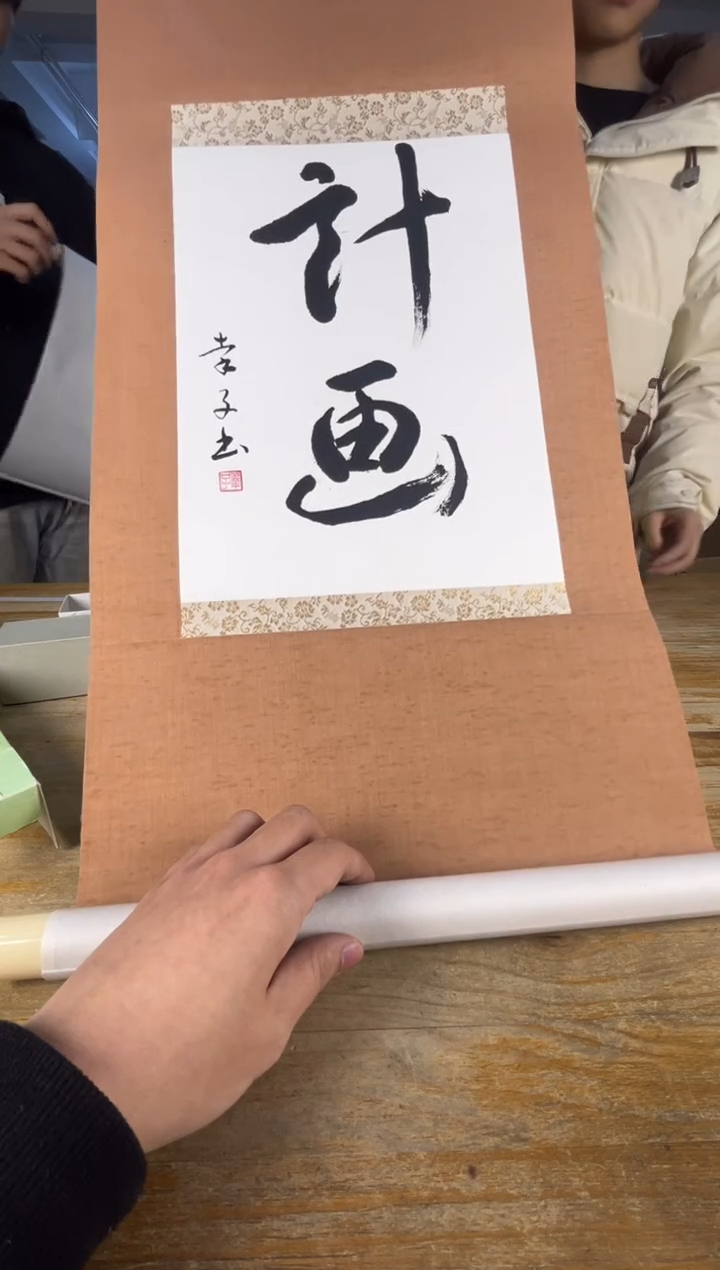 計画
幸子書